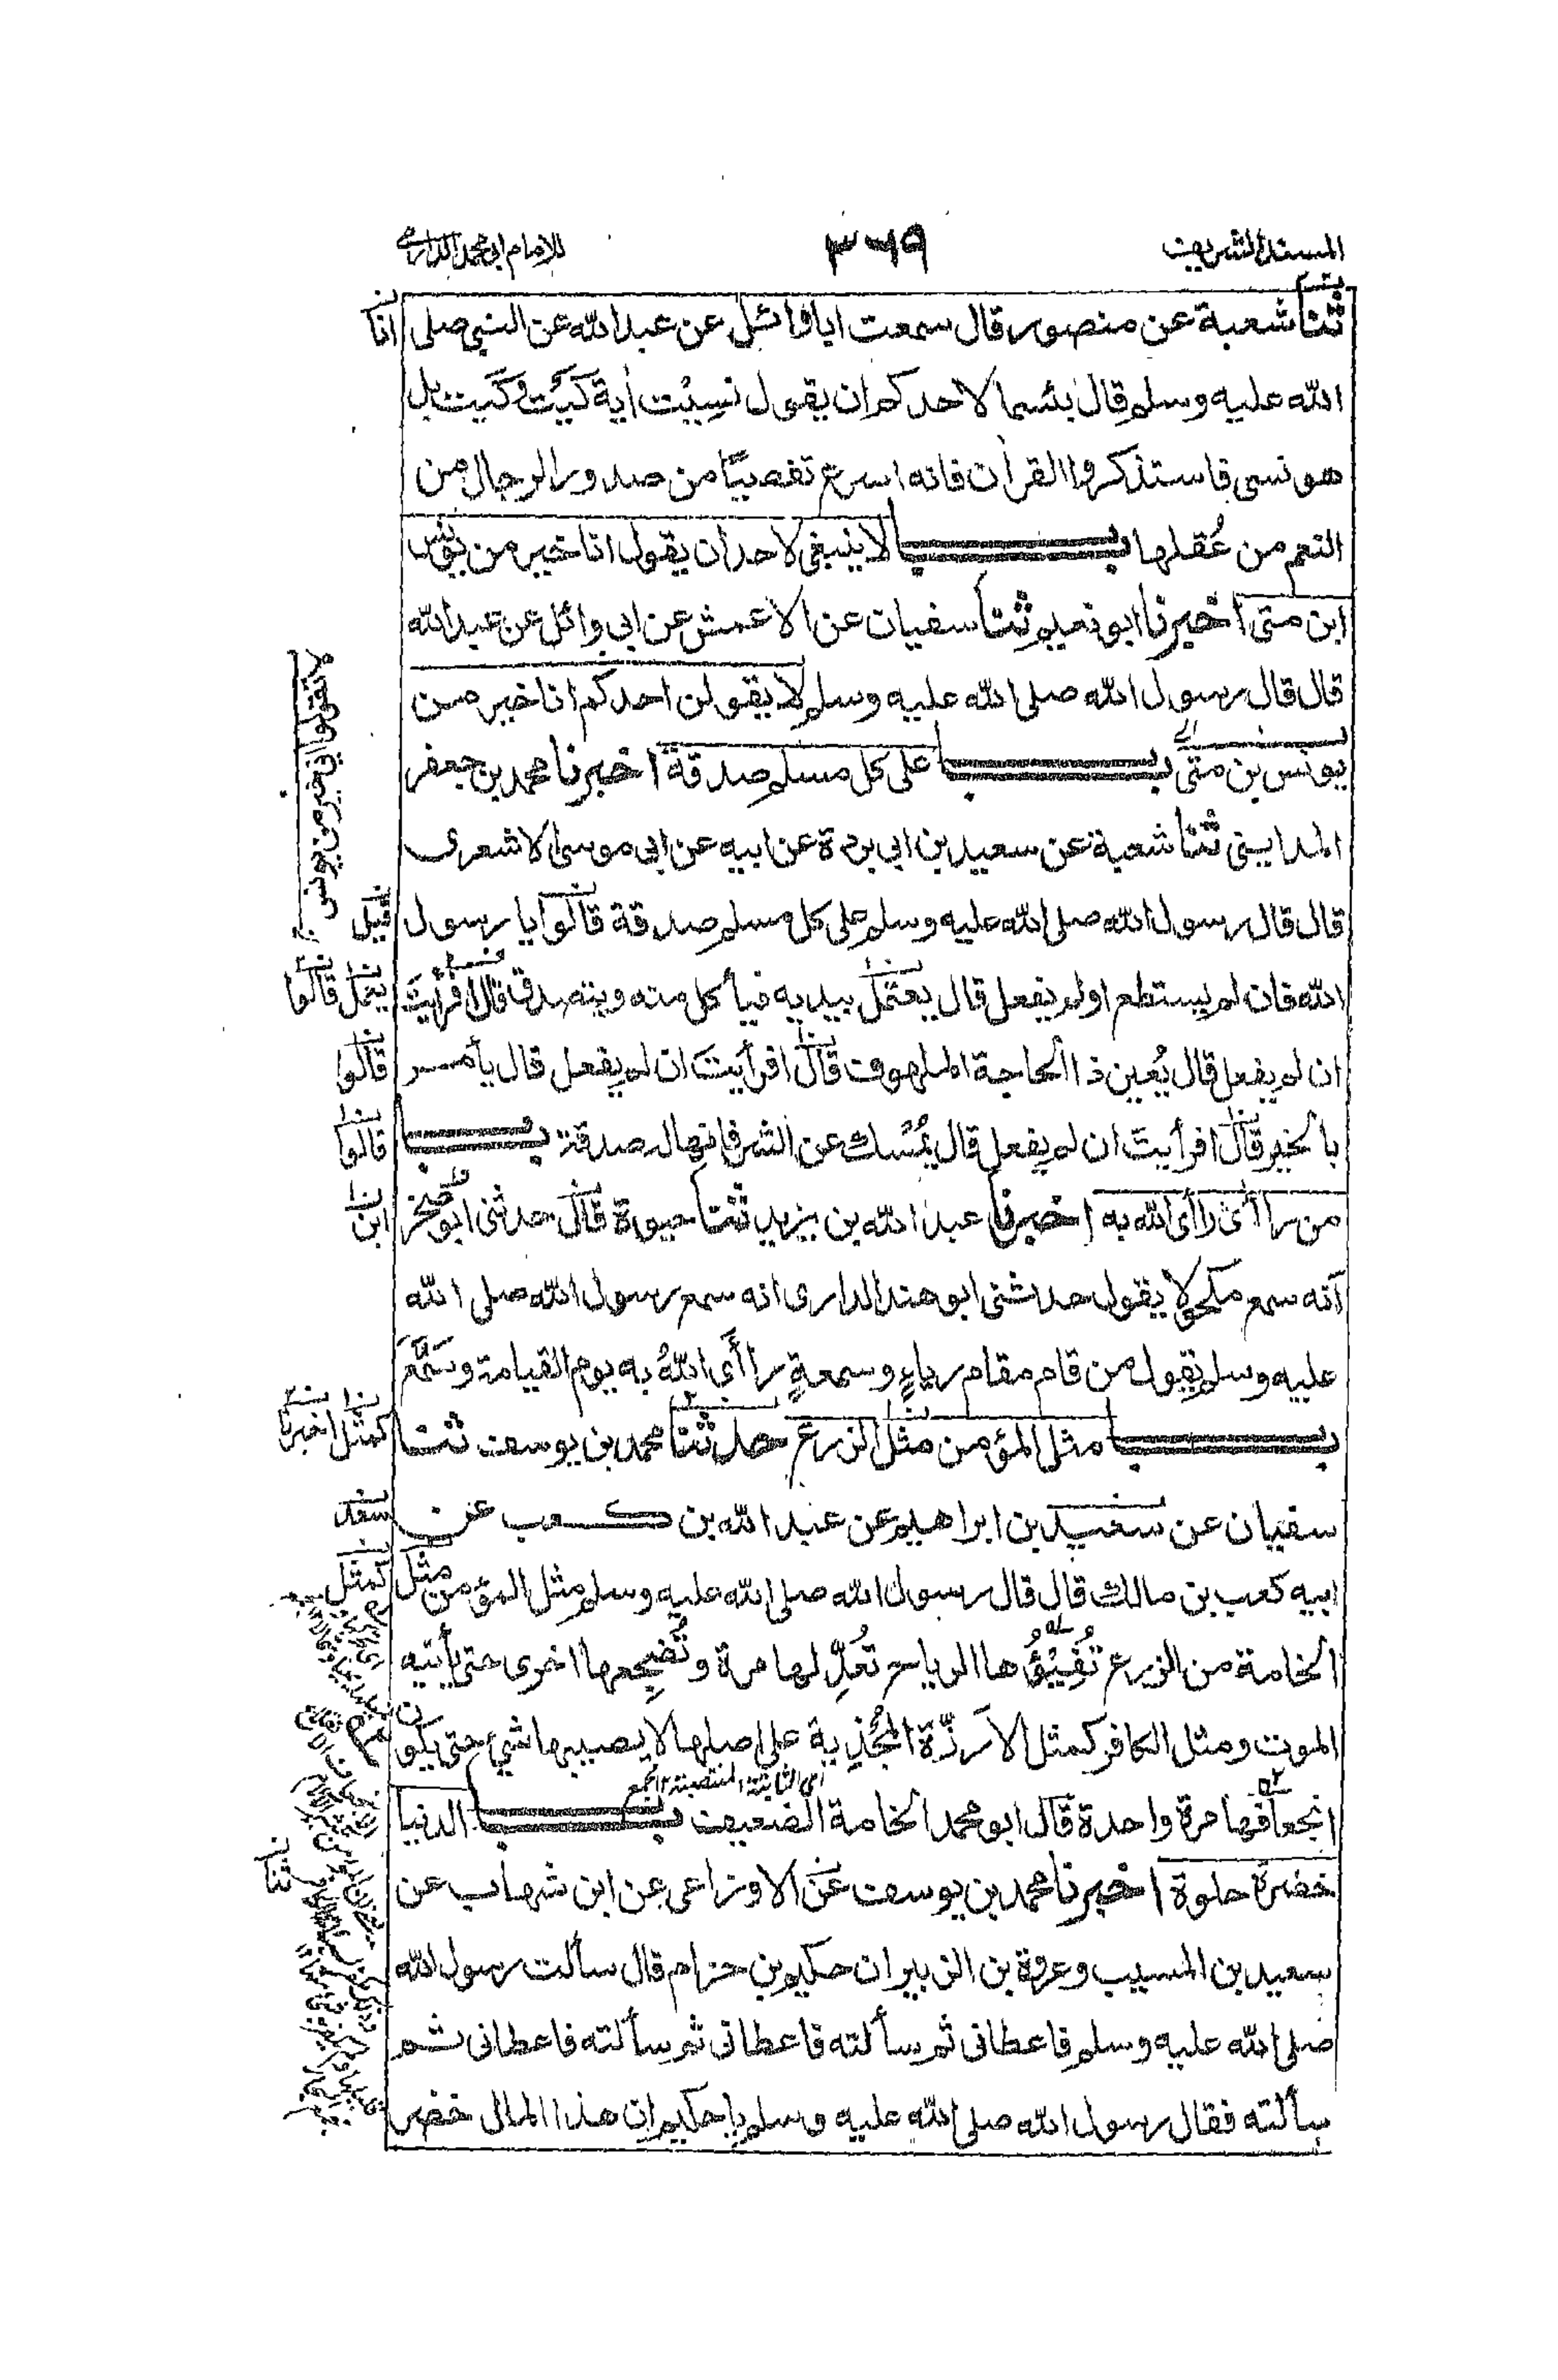 المسند الشريف ٣٦٩ للامام ابي محمد الدارمي
ثنا شعبة عن منصور قال سمعت ابا وائل عن عبد الله عن النبي صلى
انا
الله عليه وسلم قال بئسما لاحدكم ان يقول نسيت أية كيت وكيت بل
هو نسي فاستذكروا القرأن فانه اسرع تفصيا من صدور الرجال من
النعم من عُقلها باب لا ينبغي لاحد ان يقول انا خير من يونس
ابن متى اخبرنا ابو نعيم ثنا سفيان عن الاعمش عن ابي وائل عن عبد الله
قال قال رسول الله صلى الله عليه وسلم لا يقولن احدكم انا خير من
لا تقولوا اني خير من يونس
يونس بن متى باب على كل مسلم صدقة اخبرنا محمد بن جعفر
المدايني ثنا شعبة عن سعيد بن ابي بردة عن ابيه عن ابي موسى الاشعرى
قال قال رسول الله صلى الله عليه وسلم على كل مسلم صدقة قالوا يا رسول
قيل
الله فان لم يستطع او لم يفعل قال يعتمل بيديه فيأكل منه ويتصدق قال افرأيت
يعمل قالوا
ان لم يفعل قال يُعين ذا الحاجة الملهوف قال افرأيت ان لم يفعل قال يأمر
قالوا
بالخير قال افرأيت ان لم يفعل قال يُمْسك عن الشر فانها له صدقة باب
قالوا
من راأى راأى الله به اخبرنا عبد الله بن يزيد ثنا حيوة قال حدثني ابو صخر
ابن
أنه سمع مكحولا يقول حدثني ابو هند الدارى انه سمع رسول الله صلى الله
عليه وسلم يقول من قام مقام رياءٍ وسمعةٍ راأَى اللهُ به يوم القيامة وسَمَّعَ
باب مثل المؤمن مثل الزرع حدثنا محمد بن يوسف ثنا
كمثل اخبرنا
سفيان عن سعيد بن ابراهيم عن عبد الله بن كعب عن
سعد
ابيه كعب بن مالك قال قال رسول الله صلى الله عليه وسلم مثل المؤمن مثل
كمثل
الخامة من الزرع تُفَيِّئُها الرياح تُعَدِّلها مرة وتُضجِعها اخرى حتى يأتيه
الموت ومثل الكافر كمثل الأَرزّة المُجْذِية على اصلها لا يصيبها شيء حتى يكون
اى الثابتة المنتصبة ١٢ مجمع
انجعافها مرة واحدة قال ابو محمد الخامة الضعيف باب الدنيا
خضرة حلوة اخبرنا محمد بن يوسف عن الاوزاعى عن ابن شهاب عن
ثنا
سعيد بن المسيب وعروة بن الزبير ان حكيم بن حزام قال سألت رسول الله
صلى الله عليه وسلم فاعطانى ثم سألته فاعطانى ثم سألته فاعطانى ثم
سألته فقال رسول الله صلى الله عليه وسلم يا حكيم ان هذا المال خضر